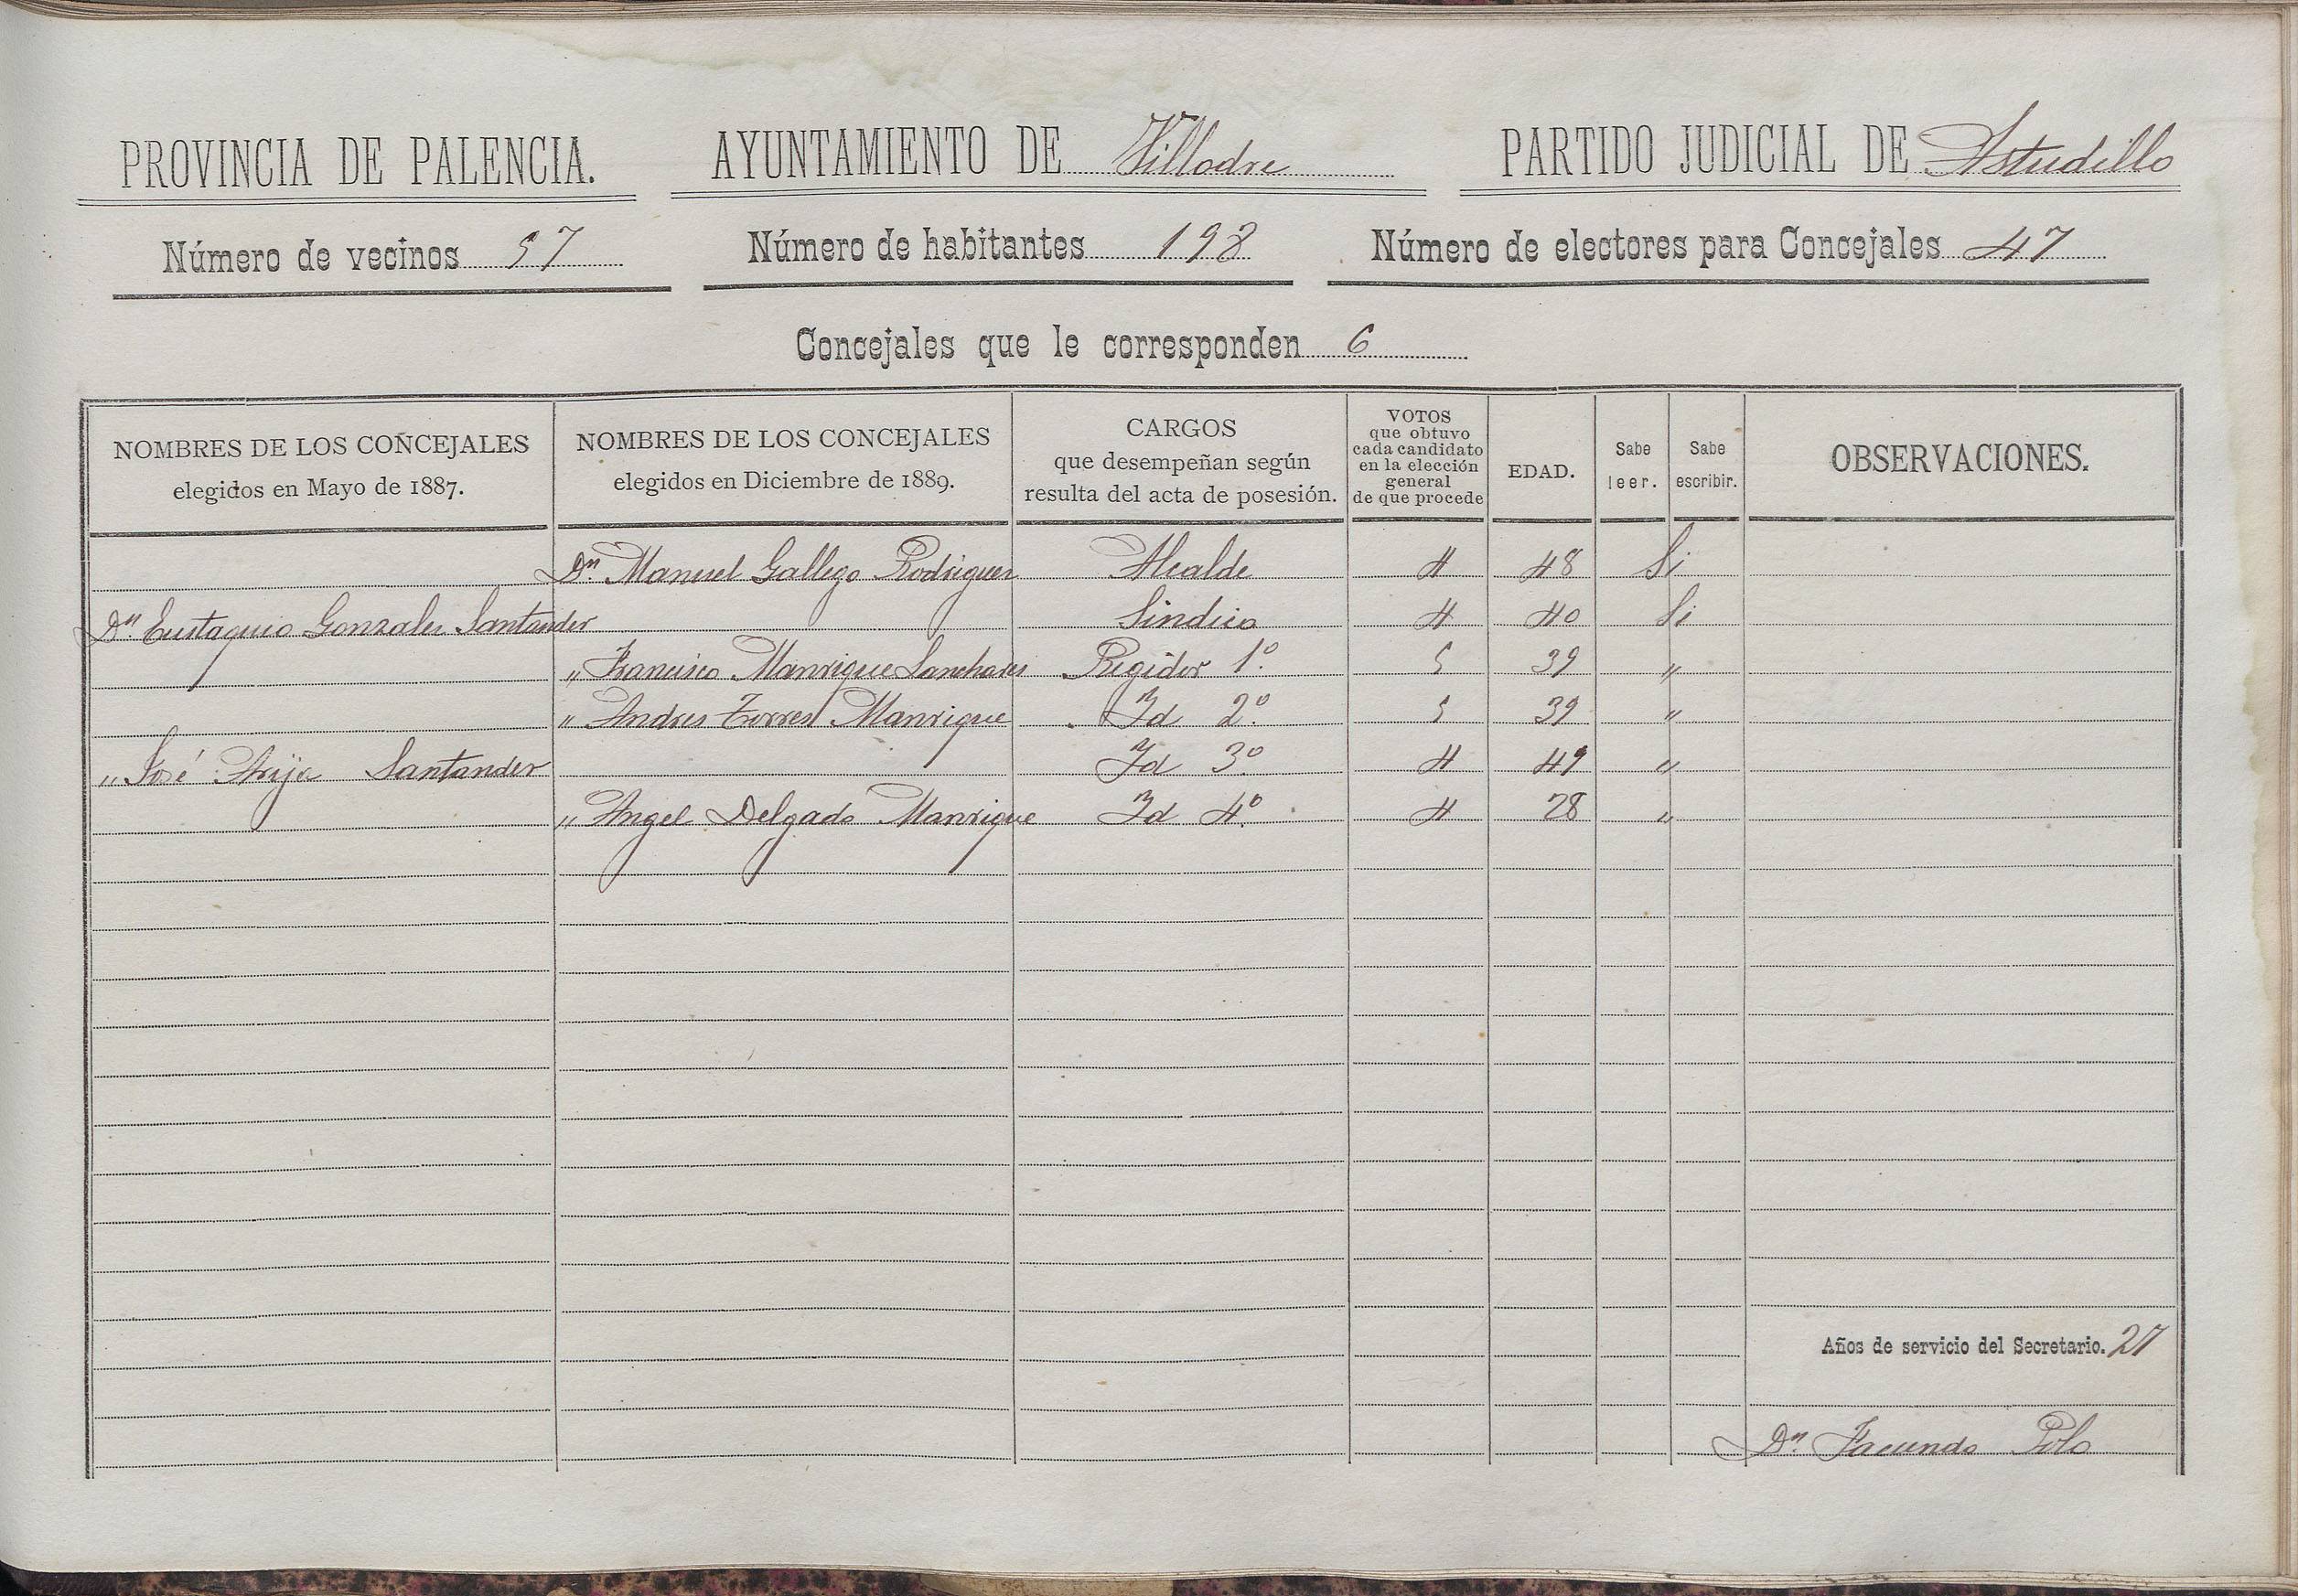 PROVINCIA DE PALENCIA. AYUNTAMIENTO DE Villodre PARTIDO JUDICIAL DE Astudillo
Número de vecinos 57 Número de habitantes 198 Número de electores para Concejales 47
Concejales que le corresponden 6
NOMBRES DE LOS CONCEJALES
elegidos en Mayo de 1887.
NOMBRES DE LOS CONCEJALES
elegidos en Diciembre de 1889.
CARGOS
que desempeñan según
resulta del acta de posesión.
VOTOS
que obtuvo
cada candidato
en la elección
general
de que procede
EDAD.
Sabe
leer.
Sabe
escribir.
OBSERVACIONES.
Dn. Manuel Gallego Rodriguez Alcalde 4 48 Si
Dn Eustaquio Gonzalez Santander Sindico 4 40 Si
" Francisco Manrique Sanchares Regidor 1º. 5 39 "
" Andres Torres Manrique Id 2º. 5 39 "
" José Arija Santander Id 3º. 4 49 "
" Angel Delgado Manrique Id 4º. 4 28 "
Años de servicio del Secretario. 27
Dn. Facundo Polo